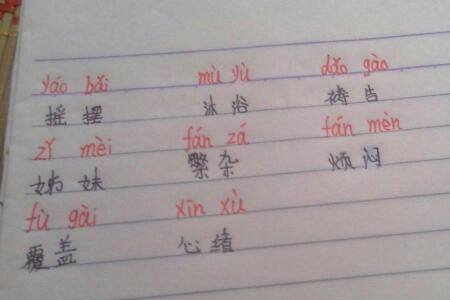 yáo bǎi mù yù dǎo gào
摇摆 沐浴 祷告
zǐ mèi fán zá fán mèn
姊妹 繁杂 烦闷
fù gài xīn xù
覆盖 心绪